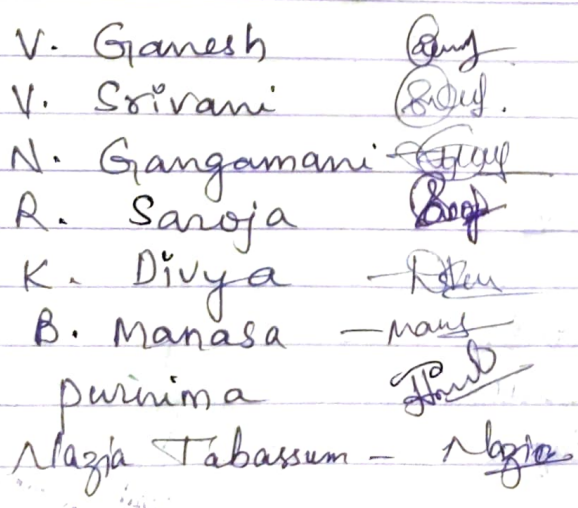 V. Ganesh
V. Srivani
N. Gangamani -
R. Saroja
K. Divya -
B. Manasa - Manas
Purinima
Nazia Tabassum - Nazia